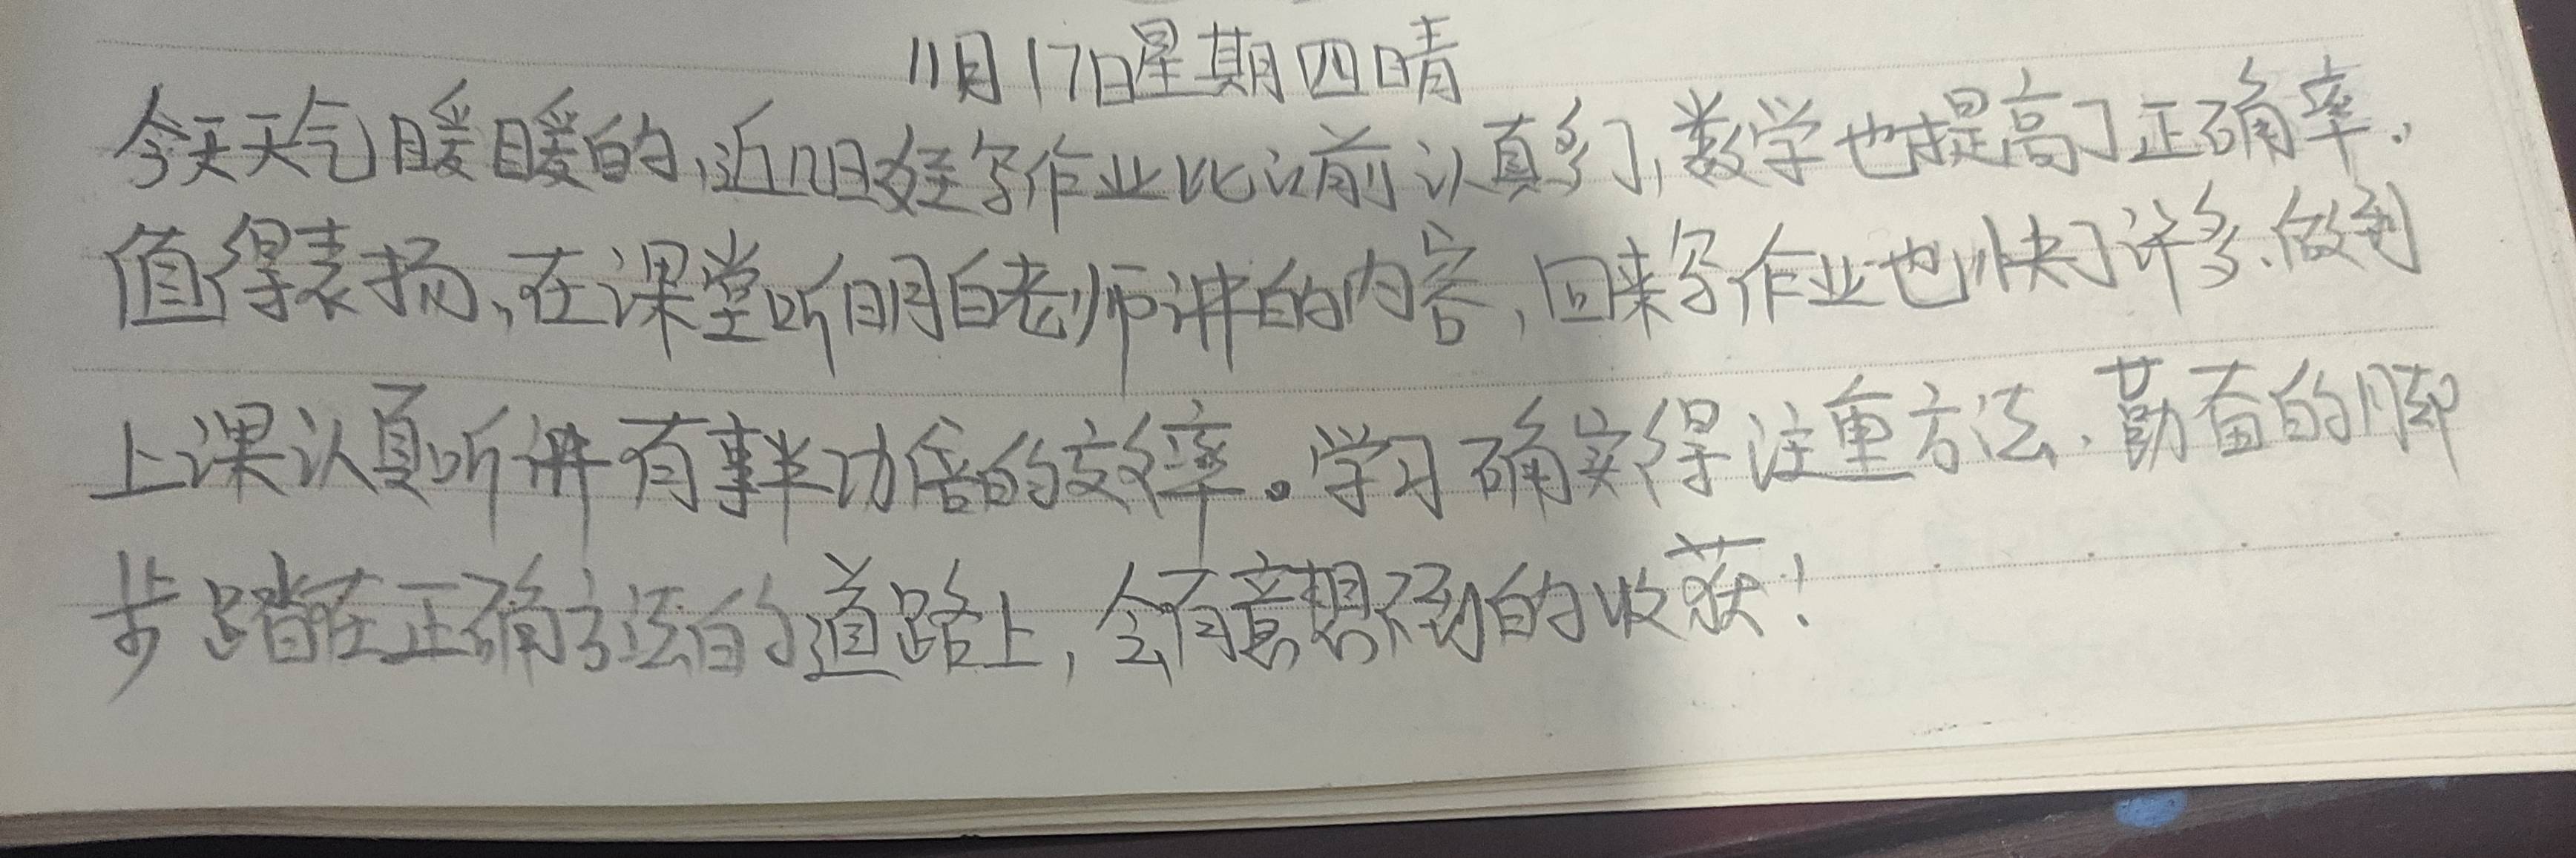 11月17日星期四晴
今天天气暖暖的,近几日孩子写作业比以前认真多了,数学也提高了正确率.
值得表扬,在课堂听明白老师讲的内容,回来写作业也快了许多.做到
上课认真听讲有事半功倍的效率。学习确实得注重方法.勤奋的脚
步踏在正确方法的道路上,会有意想不到的收获!